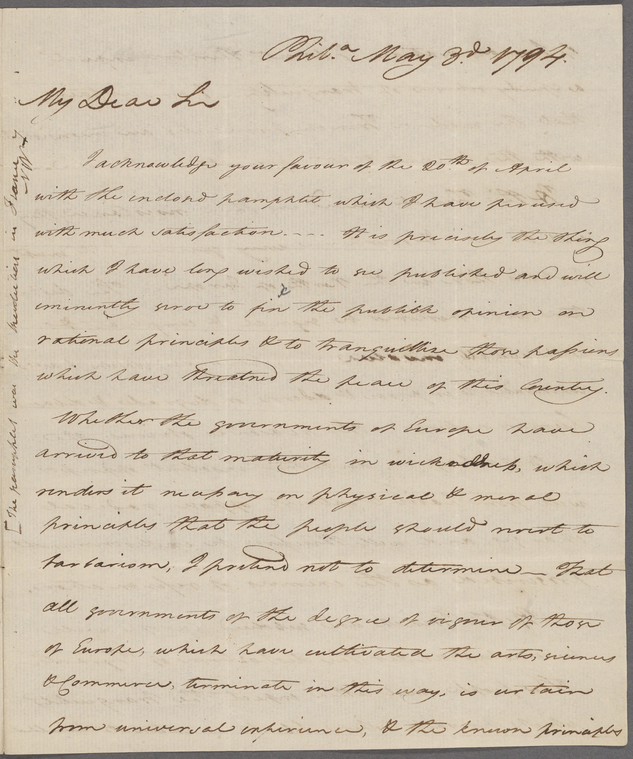 Phil.a May 3.d 1794.
My Dear Sir
I acknowledge your favour of the 20.th of April
with the inclosd pamphlet which I have perused
with much satisfaction. ... It is precisely the thing
which I have long wished to see published and will
eminently serve to fix the publick opinion on
rational principles & to tranquillise those passions
which have threatned the peace of this Country.
Whether the governments of Europe have
arrived to that maturity in wickedness, which
renders it necessary on physical & moral
principles that the people should revert to
barbarism, I pretend not to determine — That
all governments of the degree of vigour of those
of Europe, which have cultivated the arts, sciences
& Commerce, terminate in this way, is certain
from universal experience, & the known principles
[The pamphlet was the Revolution in France
NW]